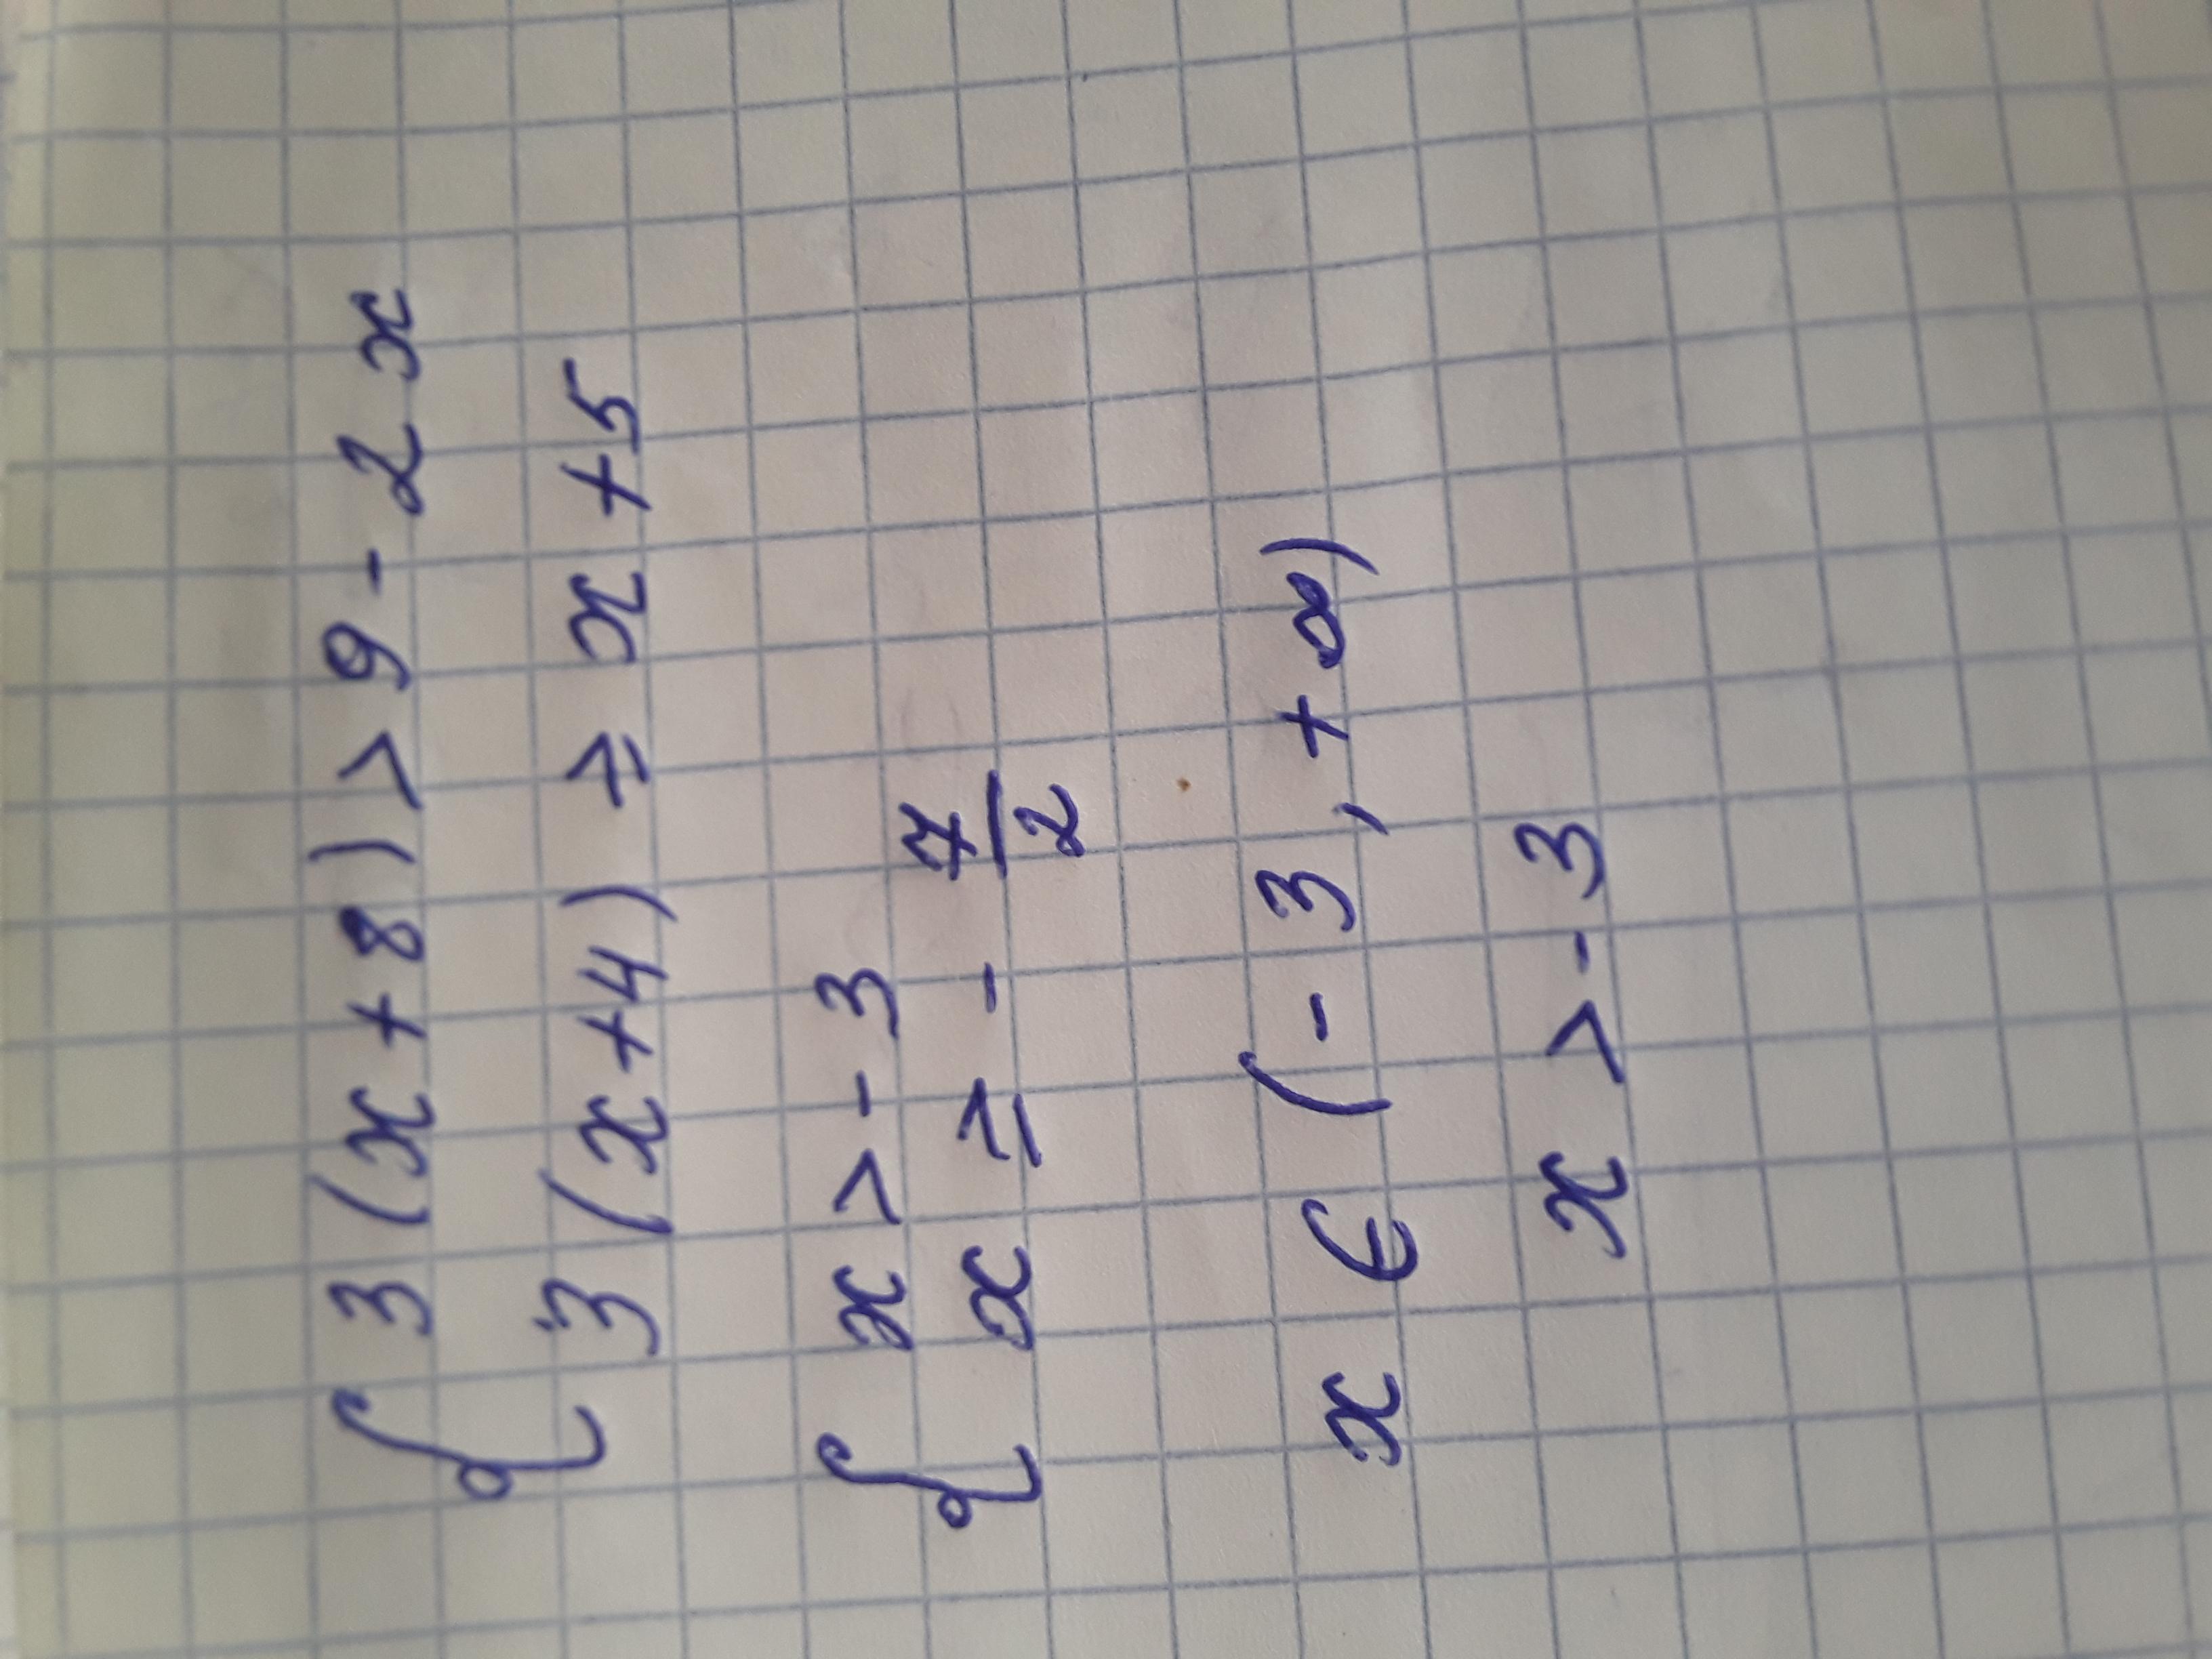 { 3 (x + 8) > 9 - 2 x
3 (x + 4) ≥ x + 5
{ x > - 3
x ≥ - 7/2
x ∈ (- 3, + ∞)
x > - 3